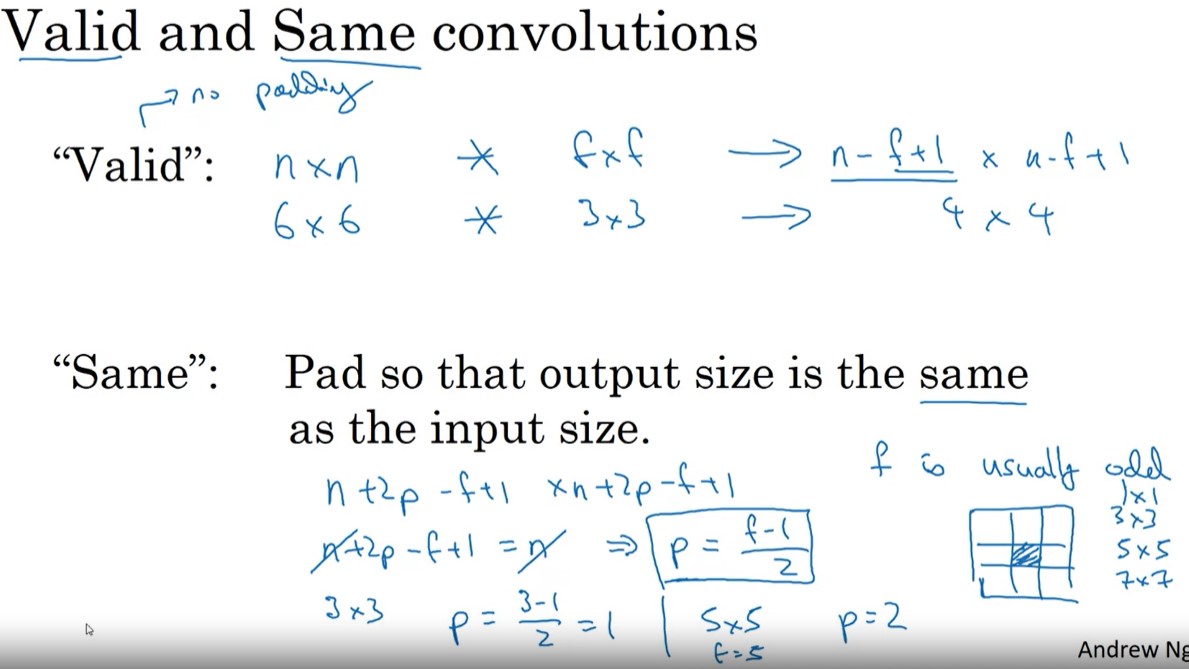 Valid and Same convolutions
→ no padding
“Valid”: n×n * f×f → n-f+1 × n-f+1
6×6 * 3×3 → 4 × 4
“Same”: Pad so that output size is the same
as the input size.
n+2p-f+1 × n+2p-f+1
n+2p-f+1 = n ⇒ p = (f-1)/2
3×3 p = (3-1)/2 = 1 | 5×5 f=5 p=2
f is usually odd
1×1
3×3
5×5
7×7
Andrew Ng